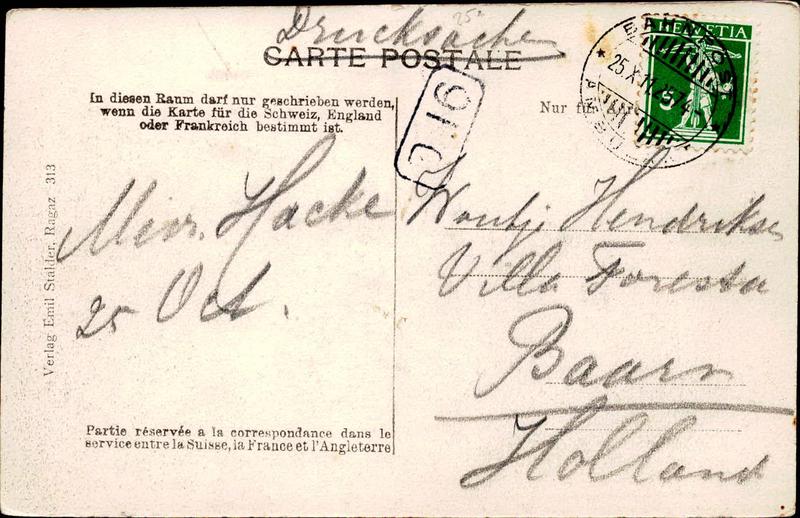 Drucksache
25a
CARTE POSTALE
HELVETIA
In diesen Raum darf nur geschrieben werden,
wenn die Karte für die Schweiz, England
oder Frankreich bestimmt ist.
Nur für
25.X.11
91G
Mevr. Hacke
25 Oct.
Wontje Hendrikse
Villa Foresta
Baarn
Holland
Partie réservée a la correspondance dans le
service entre la Suisse, la France et l'Angleterre
Verlag Emil Stalder, Ragaz 313